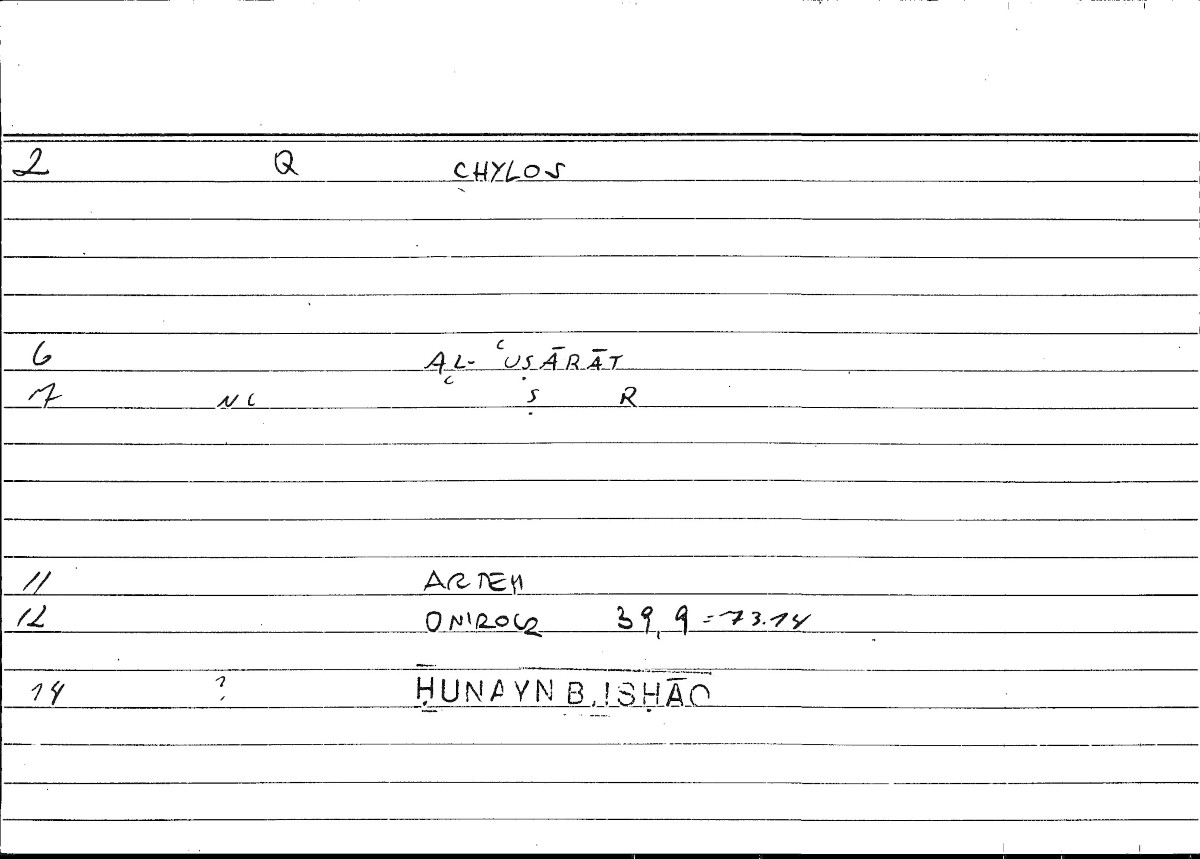 2 Q CHYLOS
6 AL- ʿUṢĀRĀT
7 NC Ṣ R
11 ARTEM
12 ONIROCR 39,9 = 73.14
14 ? ḤUNAYN B. ISḤĀQ